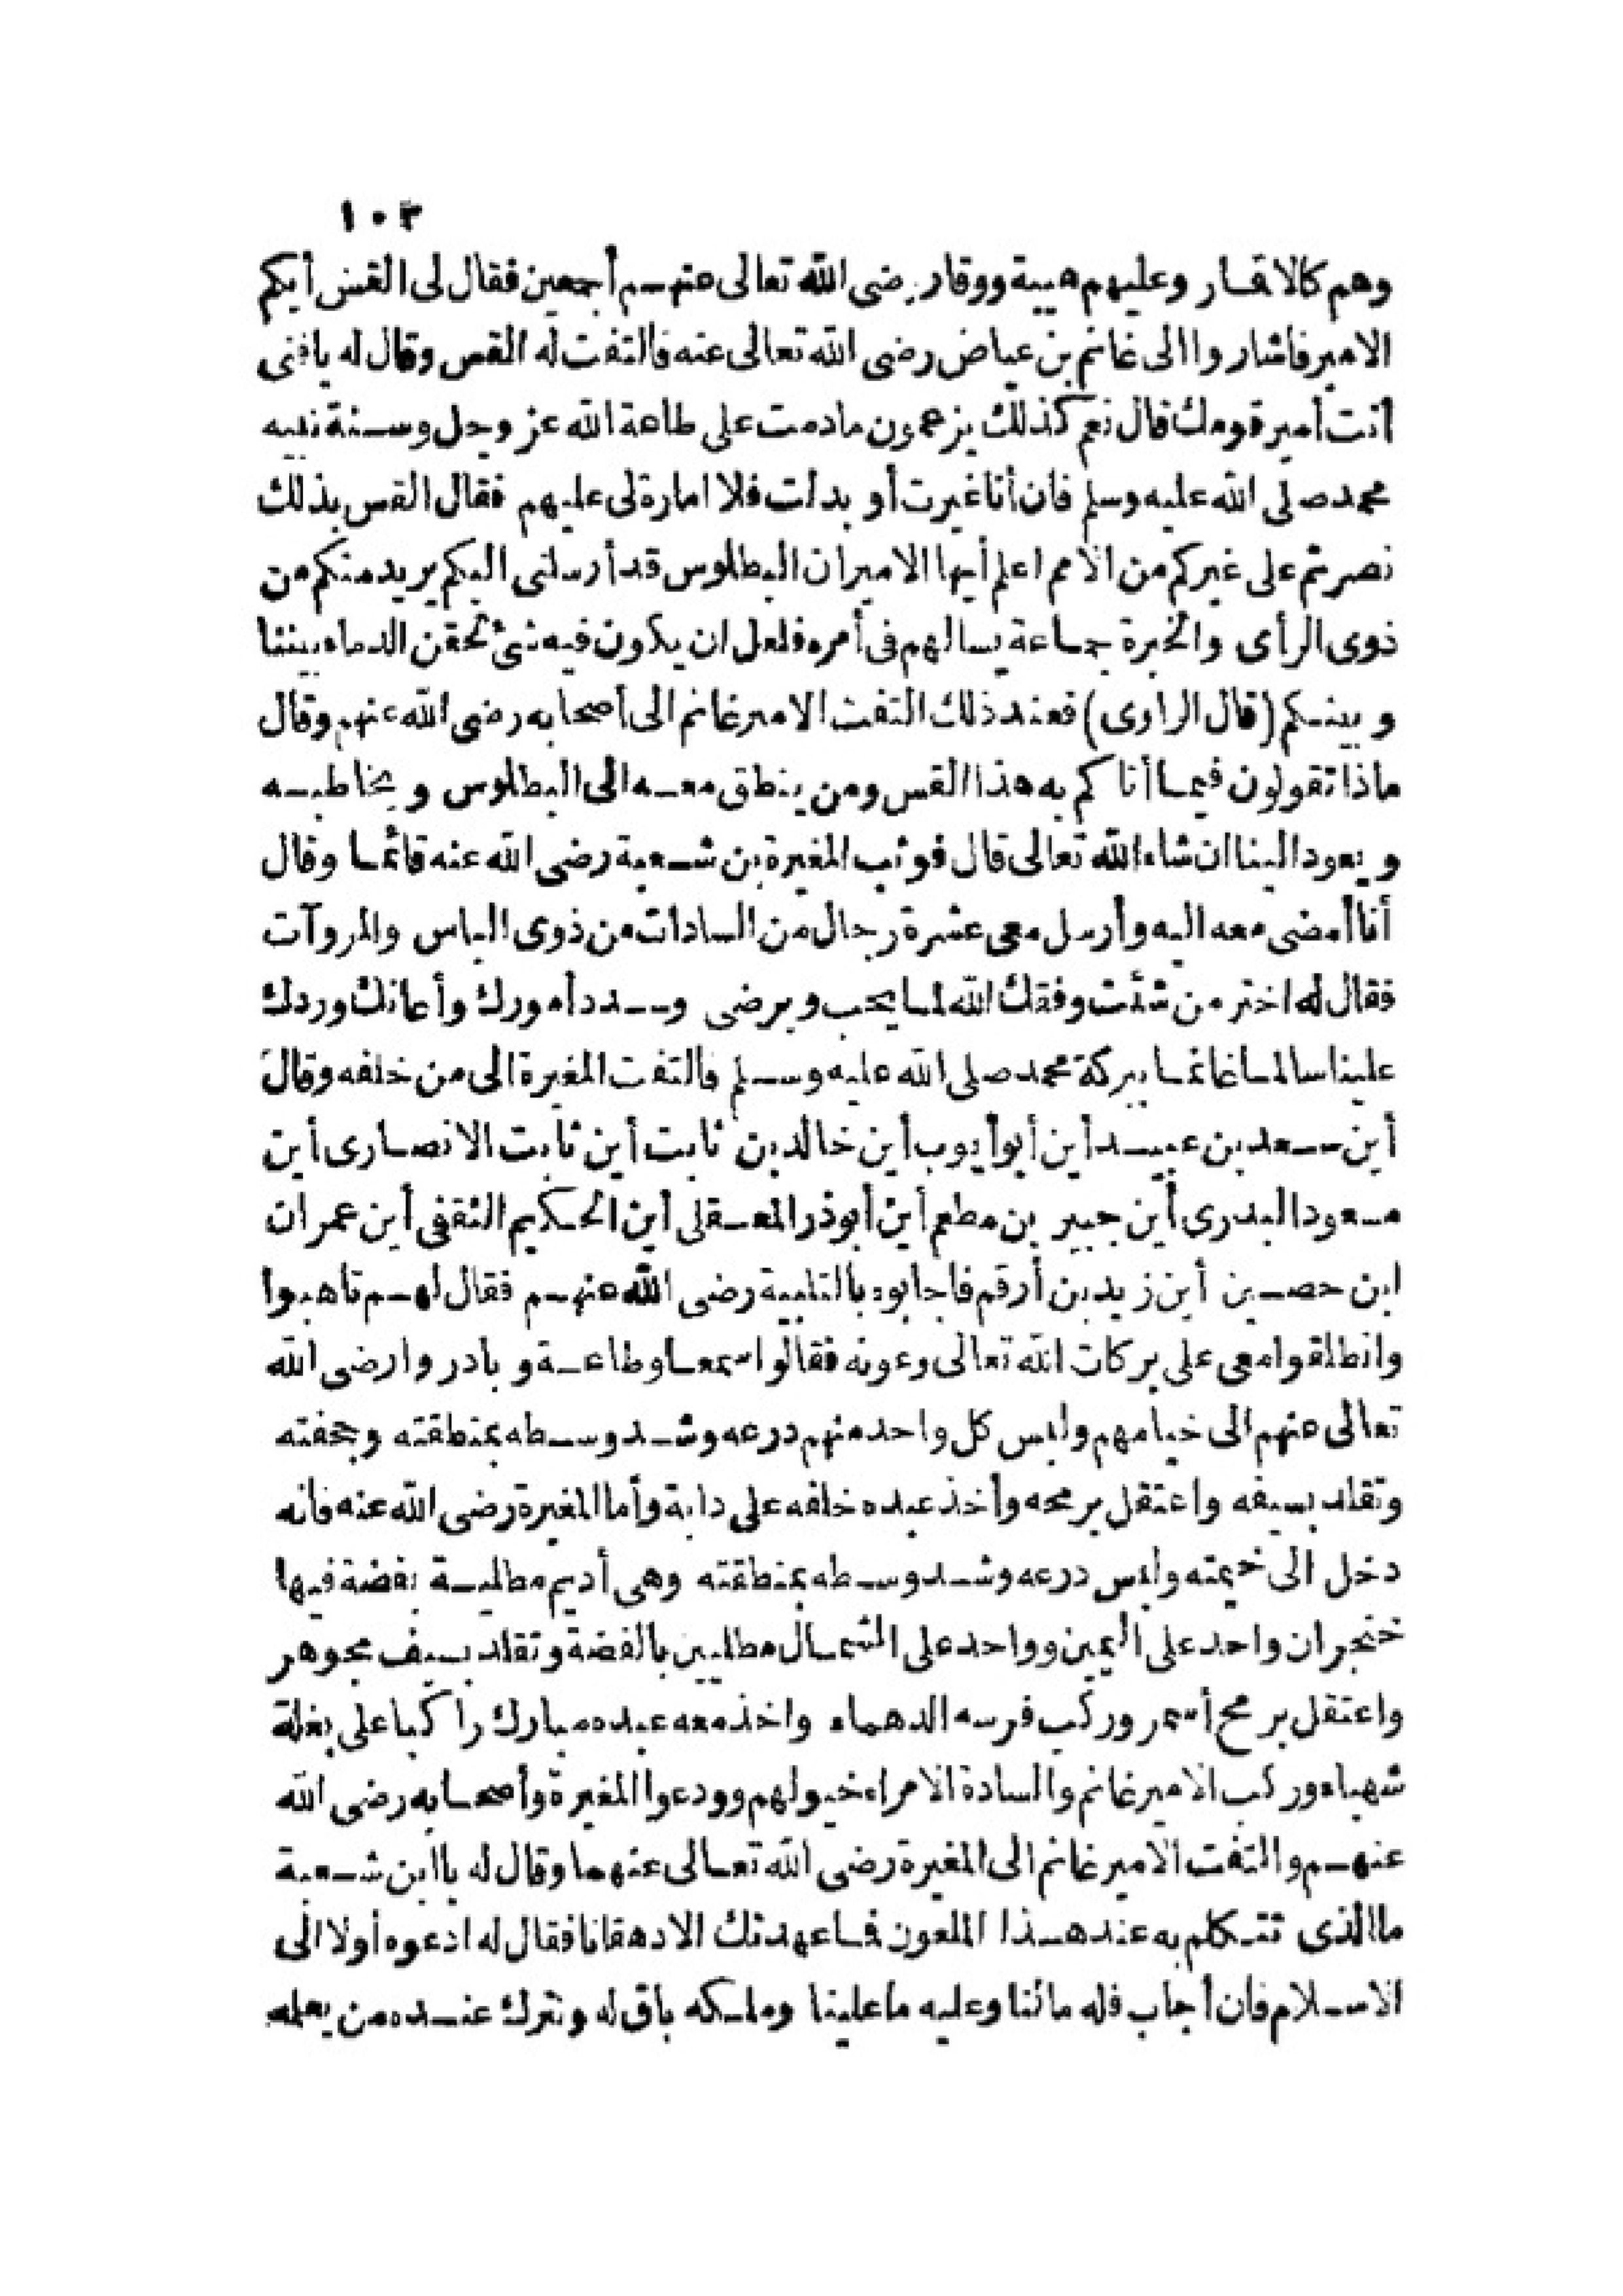 ١٠٣
وهم كالاقمار وعليهم هيبة ووقار رضى الله تعالى عنهم أجمعين فقال لى القس أيكم
الامير فاشار وا الى غانم بن عياض رضى الله تعالى عنه فالتفت له القس وقال له يا فتى
أنت أمير قومك قال نعم كذلك يزعمون مادمت على طاعة الله عز وجل وسنة نبيه
محمد صلى الله عليه وسلم فان أنا غيرت أو بدلت فلا امارة لى عليهم فقال القس بذلك
نصرتم على غيركم من الامم اعلم أيها الامير ان البطلوس قد أرسلنى اليكم يريد منكم من
ذوى الرأى والخبرة جماعة يسالهم فى أمره فلعل ان يكون فيه شئ تحقن الدماء بيننا
و بينكم (قال الراوى) فعند ذلك التفت الامير غانم الى أصحابه رضى الله عنهم وقال
ماذا تقولون فيما أتاكم به هذا القس ومن ينطق معه الى البطلوس و يخاطبه
و يعود الينا ان شاء الله تعالى قال فوثب المغيرة بن شعبة رضى الله عنه قائما وقال
أنا أمضى معه اليه وأرسل معى عشرة رجال من السادات من ذوى الباس والمروآت
فقال له اختر من شئت وفقك الله لما يحب و يرضى وسدد أمورك وأعانك وردك
علينا سالما غانما ببركة محمد صلى الله عليه وسلم فالتفت المغيرة الى من خلفه وقال
أين سعد بن عبيد أين أبو أيوب أين خالد بن ثابت أين ثابت الانصارى أين
مسعود البدرى أين جبير بن مطعم أين أبوذر المعقلى أين الحكيم الثقفى أين عمران
ابن حصين أين زيد بن أرقم فاجابوه بالتلبية رضى الله عنهم فقال لهم تاهبوا
وانطلقوا معى على بركات الله تعالى وعونه فقالوا سمعا وطاعة و بادر وا رضى الله
تعالى عنهم الى خيامهم ولبس كل واحد منهم درعه وشد وسطه بمنطقته وحجفته
وتقلد بسيفه واعتقل برمحه وأخذ عبده خلفه على دابة وأما المغيرة رضى الله عنه فانه
دخل الى خيمته ولبس درعه وشد وسطه بمنطقته وهى أديم مطلية بفضة فيها
خنجران واحد على اليمين وواحد على الشمال مطليين بالفضة وتقلد بسيف مجوهر
واعتقل برمح أسمر وركب فرسه الدهماء واخذ معه عبده مبارك راكبا على بغلة
شهباء وركب الامير غانم والسادة الامراء خيولهم وودعوا المغيرة وأصحابه رضى الله
عنهم والتفت الامير غانم الى المغيرة رضى الله تعالى عنهما وقال له يا ابن شعبة
ما الذى تتكلم به عند هذا الملعون فما عهدتك الا دهقانا فقال له ادعوه أولا الى
الاسلام فان أجاب فله مالنا وعليه ما علينا وملكه باق له ونترك عنده من يعلمه